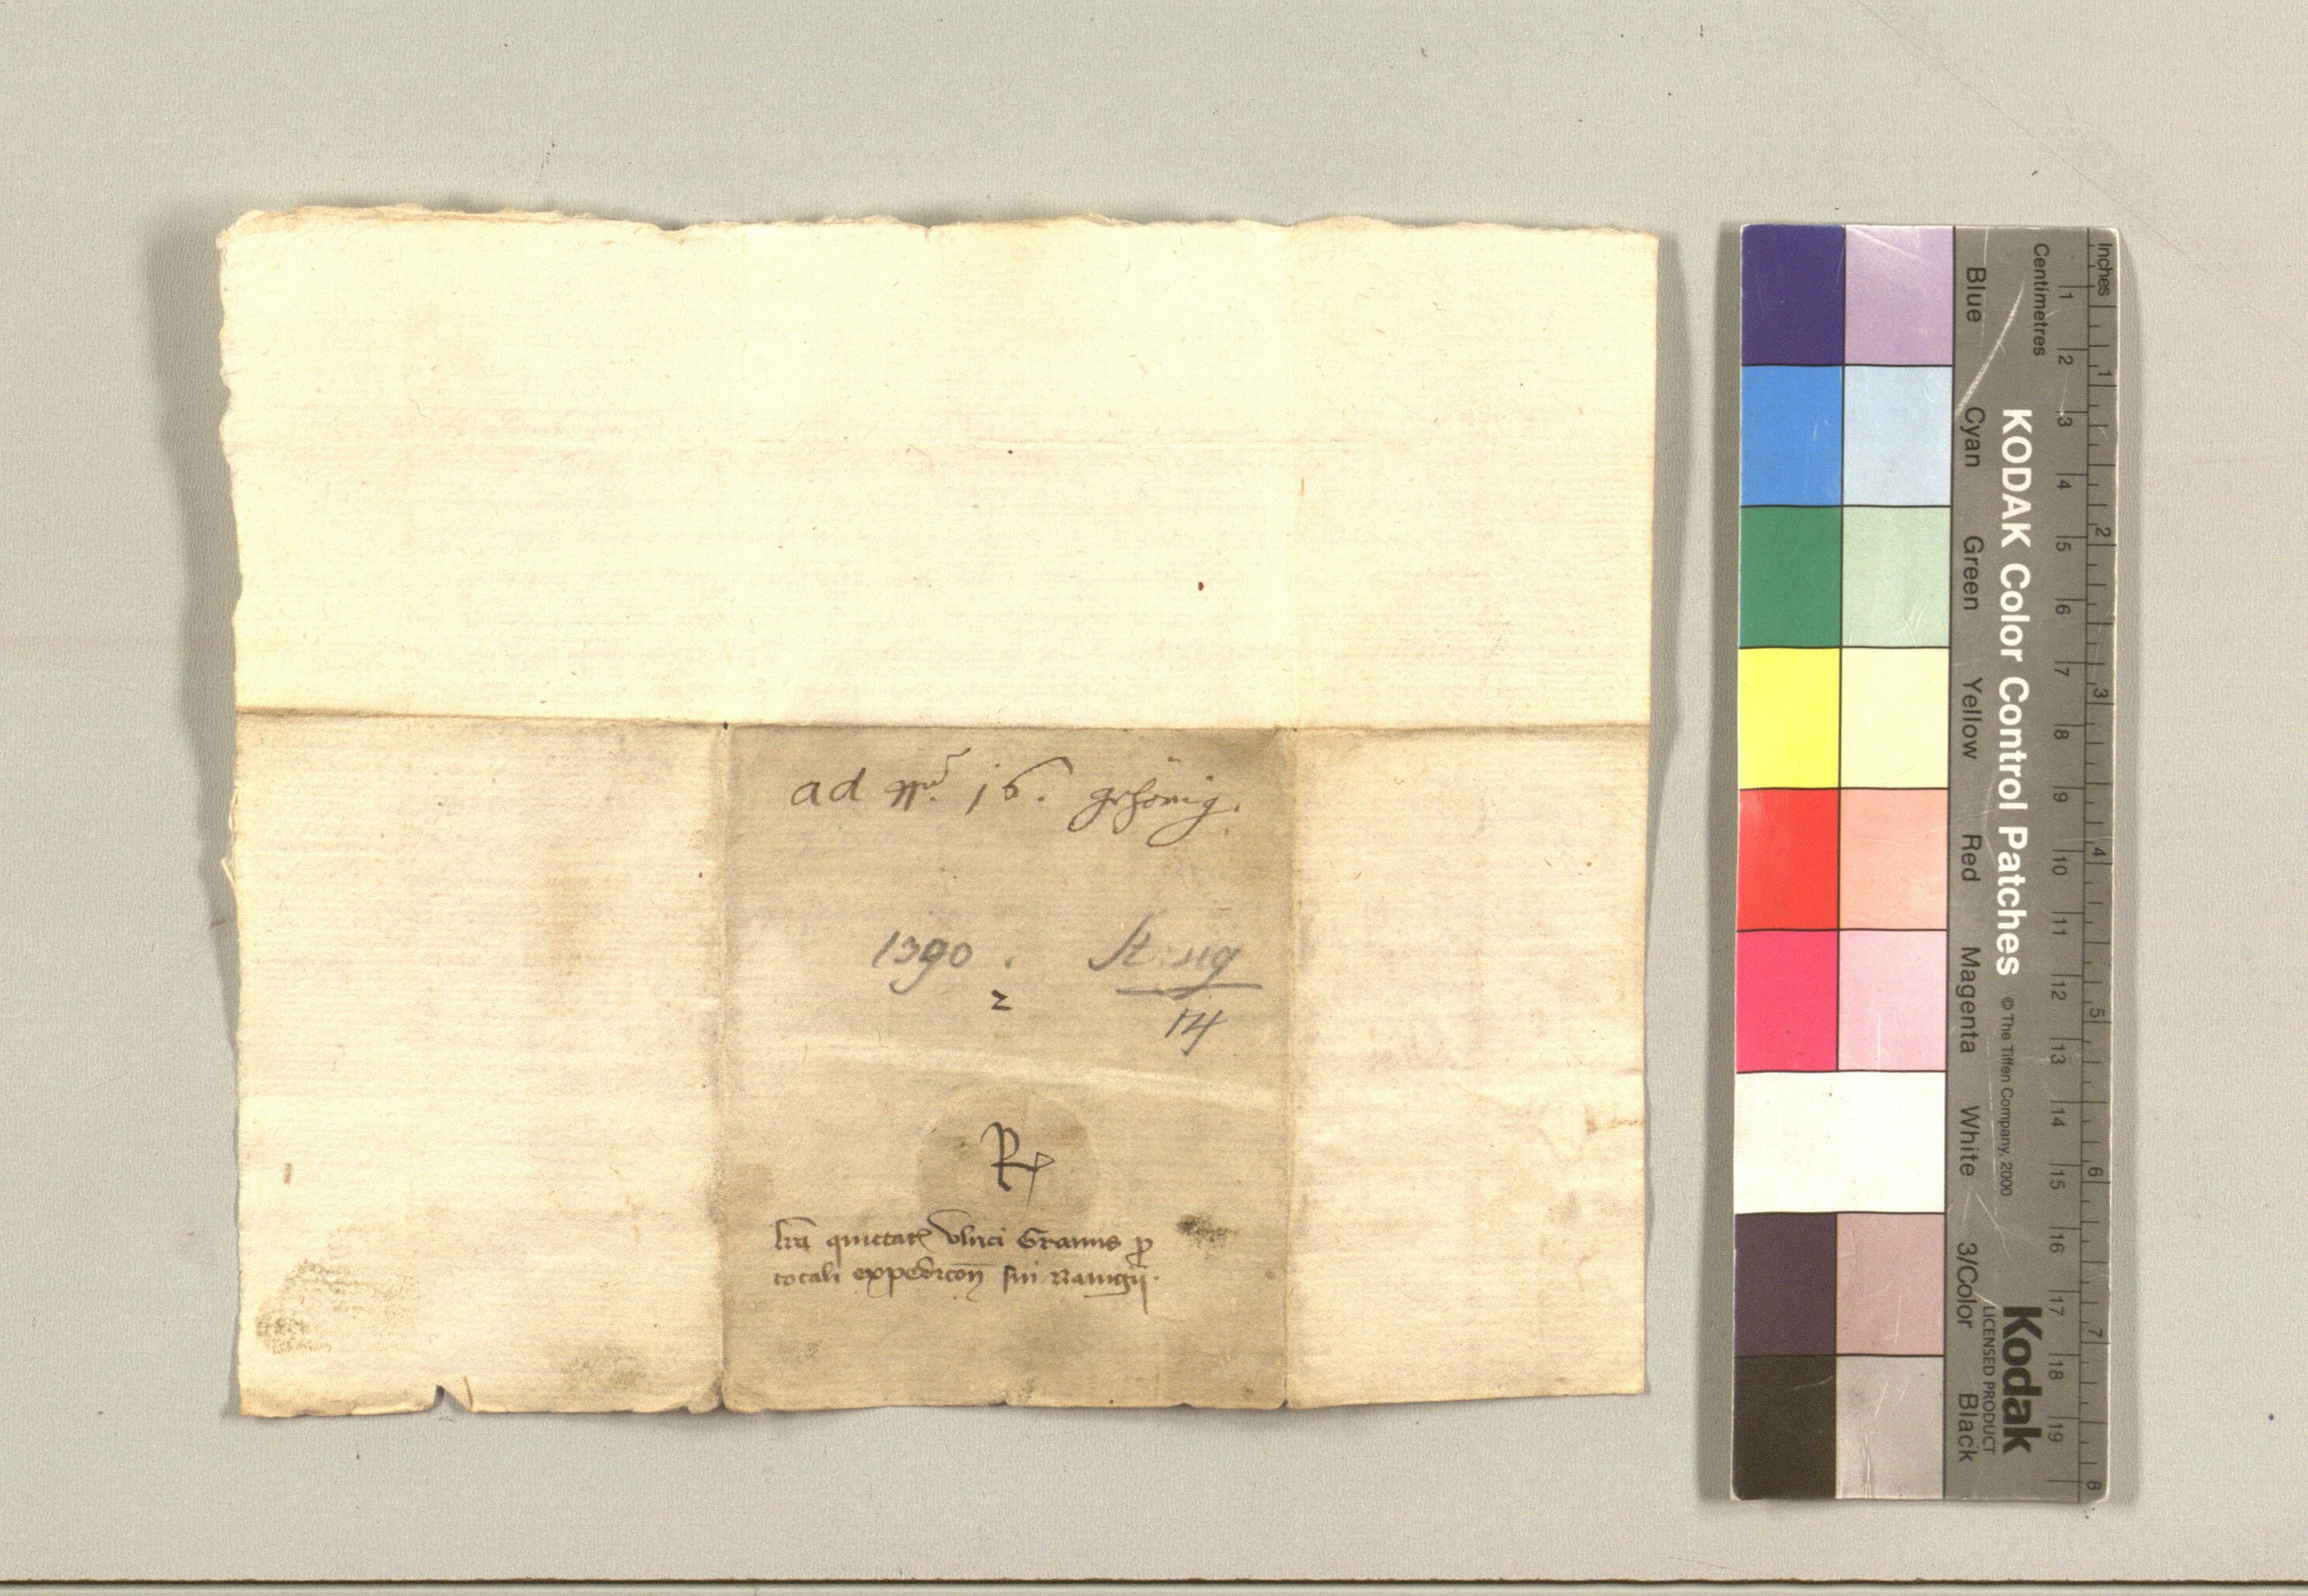 ad Nrũ. 16. gehörig.
1390 .
2
14
R
lr̄a quittac̄ Vlrici Grams ꝑ
totali expedic̄on̄ sui nauigij.
KODAK Color Control Patches
© The Tiffen Company, 2000
Kodak
LICENSED PRODUCT
Blue Cyan Green Yellow Red Magenta White 3/Color Black
Centimetres 1 2 3 4 5 6 7 8 9 10 11 12 13 14 15 16 17 18 19
Inches 1 2 3 4 5 6 7 8